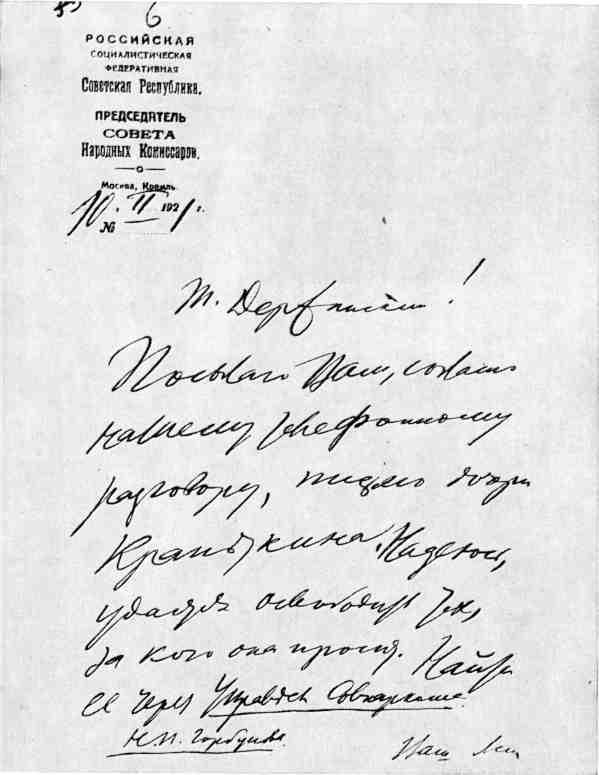 6
РОССИЙСКАЯ
СОЦИАЛИСТИЧЕСКАЯ
ФЕДЕРАТИВНАЯ
Советская Республика.
ПРЕДСЕДАТЕЛЬ
СОВЕТА
Народных Комиссаров.
Москва, Кремль.
10. II 1921 г.
№
Т. !
Посылаю Вам, согласно
нашему телефонному
разговору, письмо дочери
Кропоткина. Надеюсь,
удастся освободить тех,
за кого она просит. Найти
ее через Управдел Совнаркома
Н.П. Горбунова.
Ваш